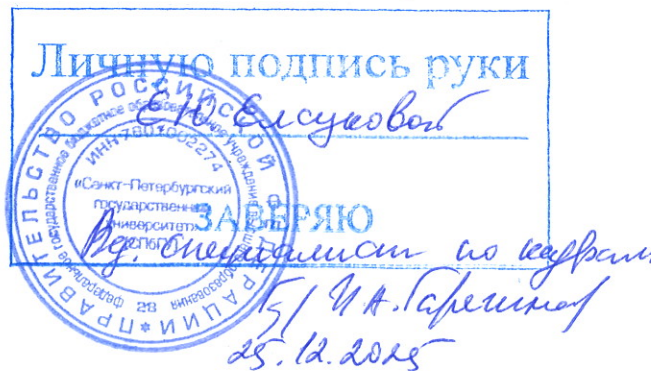 Личную подпись руки
Е.Ю. Елсуковой
ЗАВЕРЯЮ
Вед. специалист по кадрам
И.А.
25.12.2025
ПРАВИТЕЛЬСТВО РОССИЙСКОЙ ФЕДЕРАЦИИ
федеральное государственное бюджетное образовательное учреждение образования
ИНН 7801002274
«Санкт-Петербургский
государственный
университет»
28